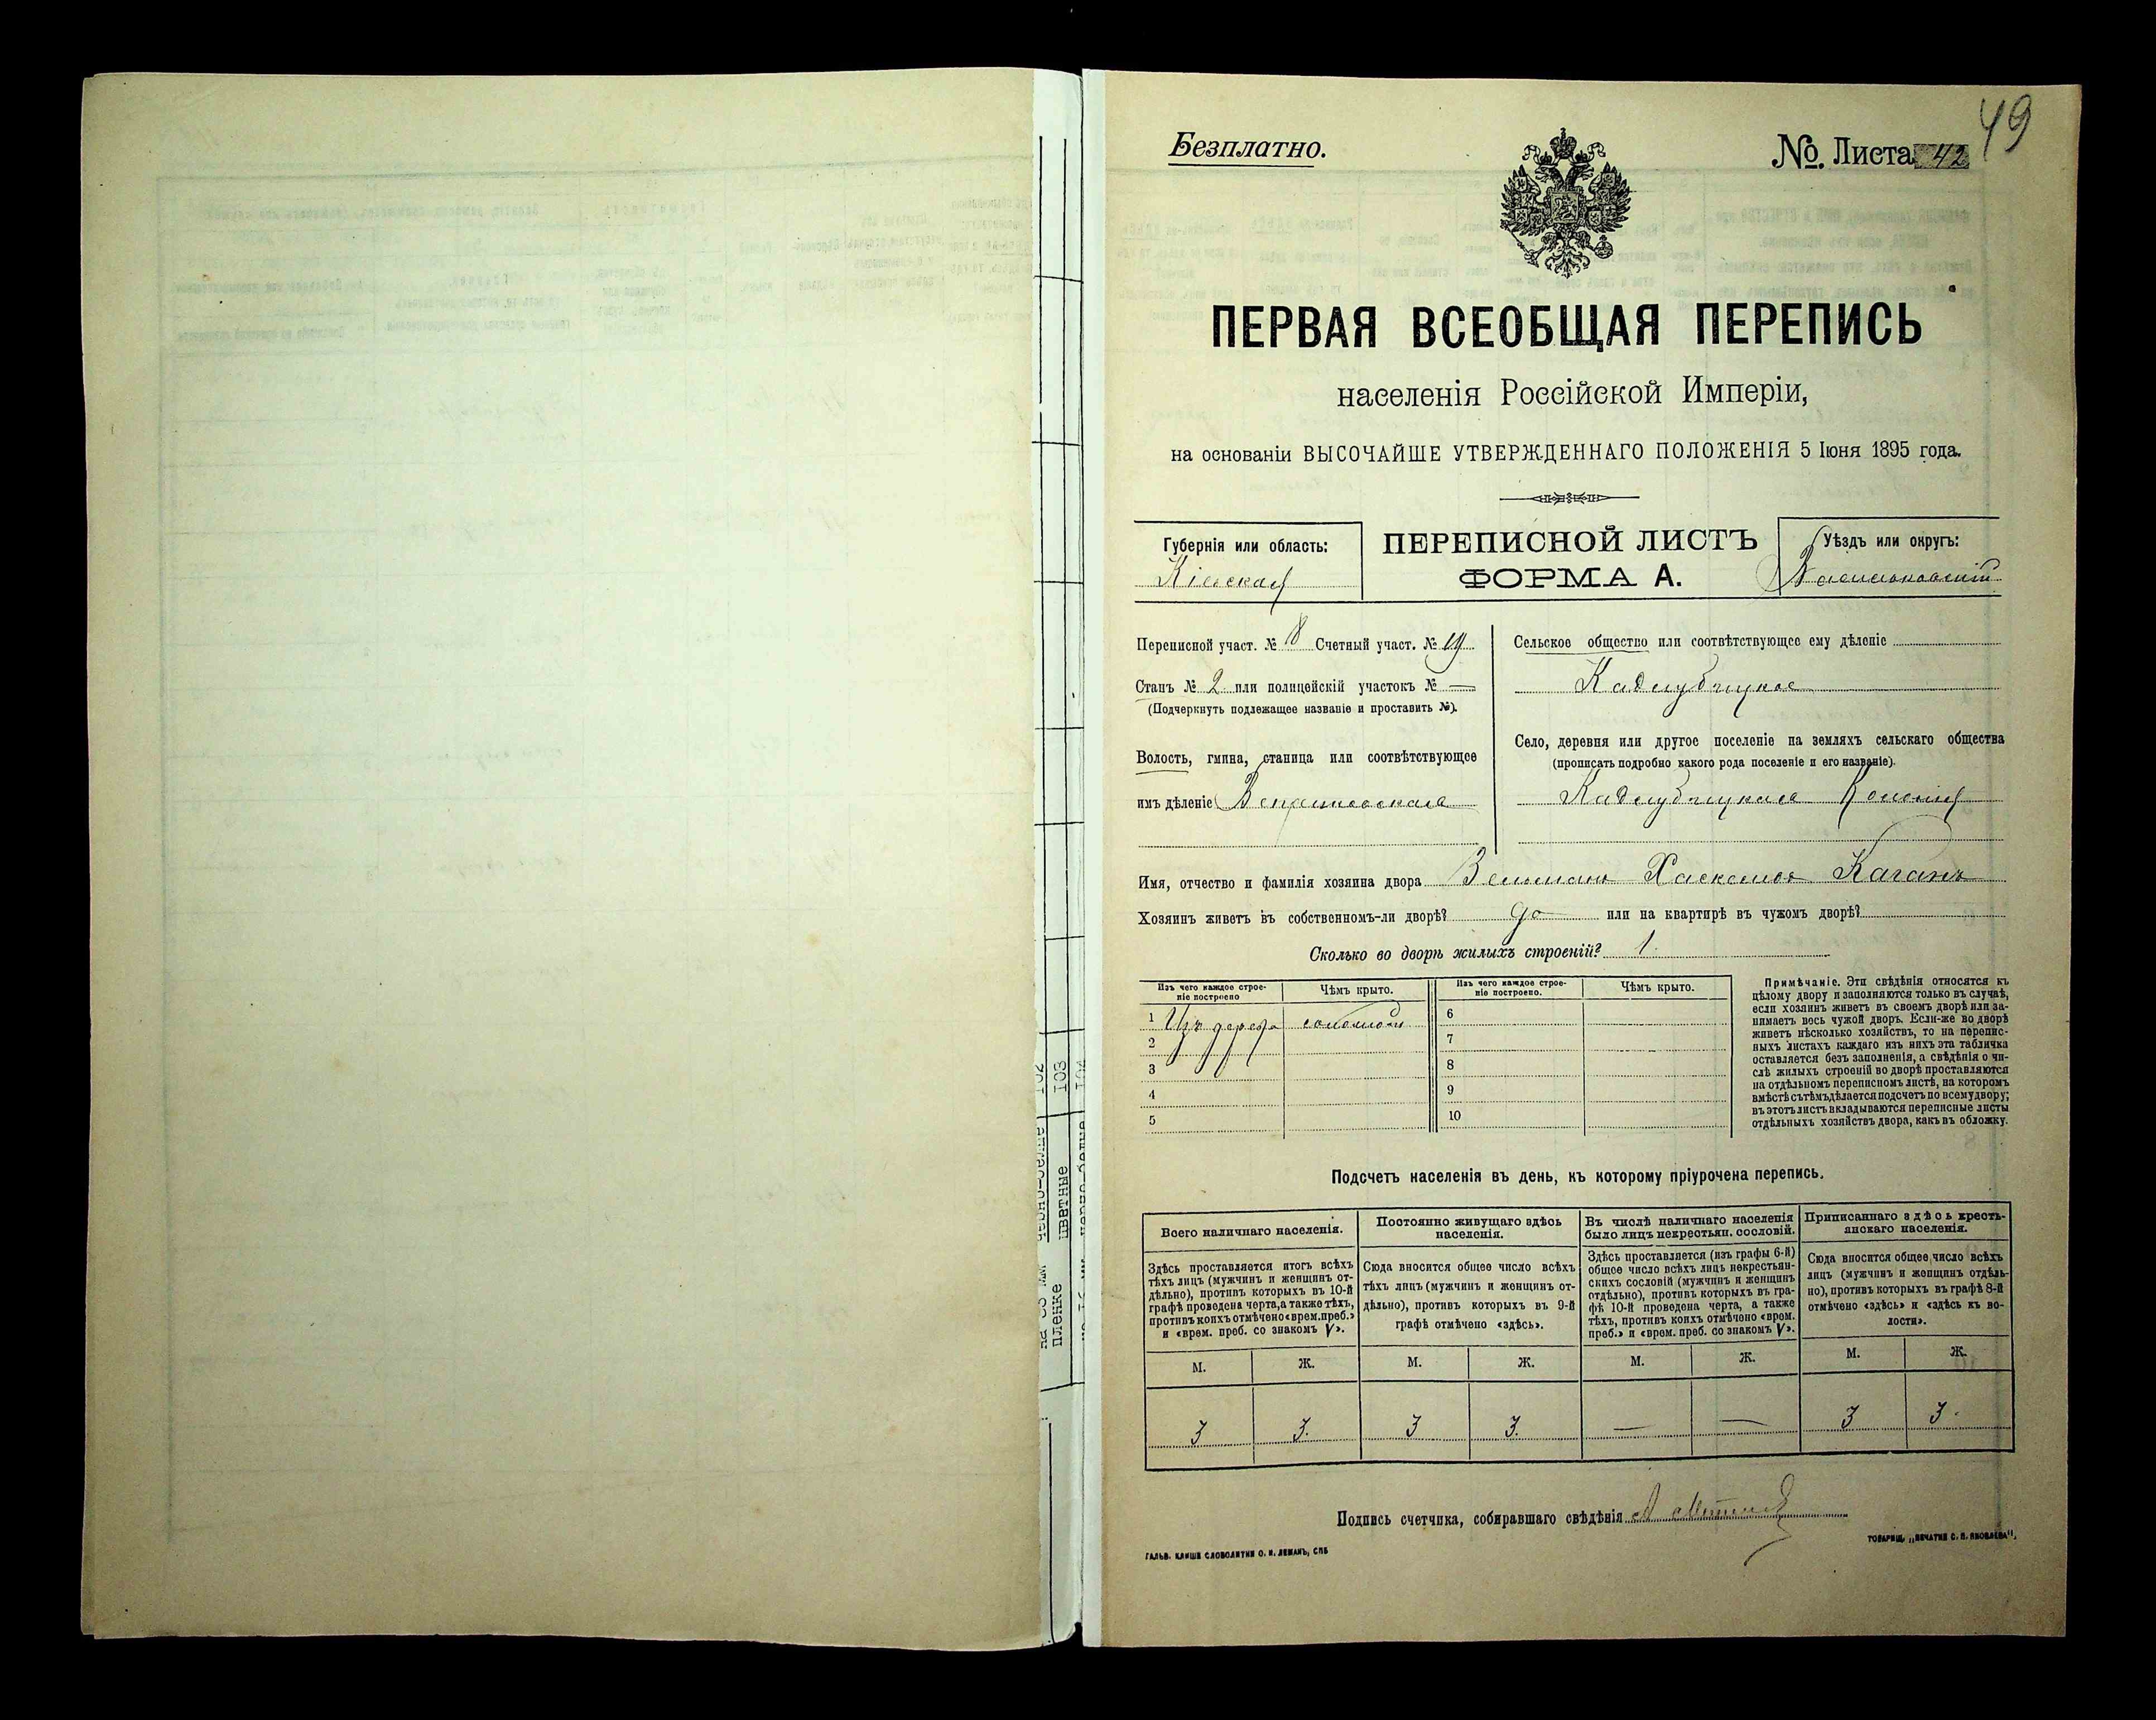 49
Безплатно.
№. Листа 42
ПЕРВАЯ ВСЕОБЩАЯ ПЕРЕПИСЬ
населенія Россійской Имперіи,
на основаніи ВЫСОЧАЙШЕ УТВЕРЖДЕННАГО ПОЛОЖЕНІЯ 5 Іюня 1895 года.
Губернія или область:
Кіевская
ПЕРЕПИСНОЙ ЛИСТЪ
ФОРМА А.
Уѣздъ или округъ:
Васильковскій
Переписной участ. № 8 Счетный участ. № 19
Станъ № 2 или полицейскій участокъ № —
(Подчеркнуть подлежащее названіе и проставить №).
Волость, гмина, станица или соотвѣтствующее
имъ дѣленіе
Сельское общество или соотвѣтствующее ему дѣленіе
Кадлубицкое
Село, деревня или другое поселеніе на земляхъ сельскаго общества
(прописать подробно какого рода поселеніе и его названіе).
Кадлубицкая Колонія
Имя, отчество и фамилія хозяина двора Вельманъ Хаскелевъ Каганъ
Хозяинъ живетъ въ собственномъ-ли дворѣ? да или на квартирѣ въ чужомъ дворѣ?
Сколько во дворѣ жилыхъ строеній? 1.
Изъ чего каждое строе-
ніе построено
Чѣмъ крыто.
Изъ чего каждое строе-
ніе построено.
Чѣмъ крыто.
1 Изъ дерева соломой
2
3
4
5
6
7
8
9
10
Примѣчаніе. Эти свѣдѣнія относятся къ
цѣлому двору и заполняются только въ случаѣ,
если хозяинъ живетъ въ своемъ дворѣ или за-
нимаетъ весь чужой дворъ. Если-же во дворѣ
живетъ нѣсколько хозяйствъ, то на перепис-
ныхъ листахъ каждаго изъ нихъ эта табличка
оставляется безъ заполненія, а свѣдѣнія о чи-
слѣ жилыхъ строеній во дворѣ проставляются
на отдѣльномъ переписномъ листѣ, на которомъ
вмѣстѣ съ тѣмъ дѣлается подсчетъ по всему двору;
въ этотъ листъ вкладываются переписные листы
отдѣльныхъ хозяйствъ двора, какъ въ обложку.
Подсчетъ населенія въ день, къ которому пріурочена перепись.
Всего наличнаго населенія.
Постоянно живущаго здѣсь
населенія.
Въ числѣ наличнаго населенія
было лицъ некрестьян. сословій.
Приписаннаго здѣсь кресть-
янскаго населенія.
Здѣсь проставляется итогъ всѣхъ
тѣхъ лицъ (мужчинъ и женщинъ от-
дѣльно), противъ которыхъ въ 10-й
графѣ проведена черта, а также тѣхъ,
противъ коихъ отмѣчено «врем. преб.»
и «врем. преб. со знакомъ V».
Сюда вносится общее число всѣхъ
тѣхъ лицъ (мужчинъ и женщинъ от-
дѣльно), противъ которыхъ въ 9-й
графѣ отмѣчено «здѣсь».
Здѣсь проставляется (изъ графы 6-й)
общее число всѣхъ лицъ некрестьян-
скихъ сословій (мужчинъ и женщинъ
отдѣльно), противъ которыхъ въ гра-
фѣ 10-й проведена черта, а также
тѣхъ, противъ коихъ отмѣчено «врем.
преб.» и «врем. преб. со знакомъ V».
Сюда вносится общее число всѣхъ
лицъ (мужчинъ и женщинъ отдѣль-
но), противъ которыхъ въ графѣ 8-й
отмѣчено «здѣсь» и «здѣсь къ во-
лости».
М. Ж. М. Ж. М. Ж. М. Ж.
3 3. 3 3. — — 3 3.
Подпись счетчика, собиравшаго свѣдѣнія
ГАЛЬВ. КЛИШЕ СЛОВОЛИТНИ О. И. ЛЕМАНЪ, СПБ
ТОВАРИЩ. „ПЕЧАТНЯ С. П. ЯКОВЛЕВА“.
102
103
цветные
пленке